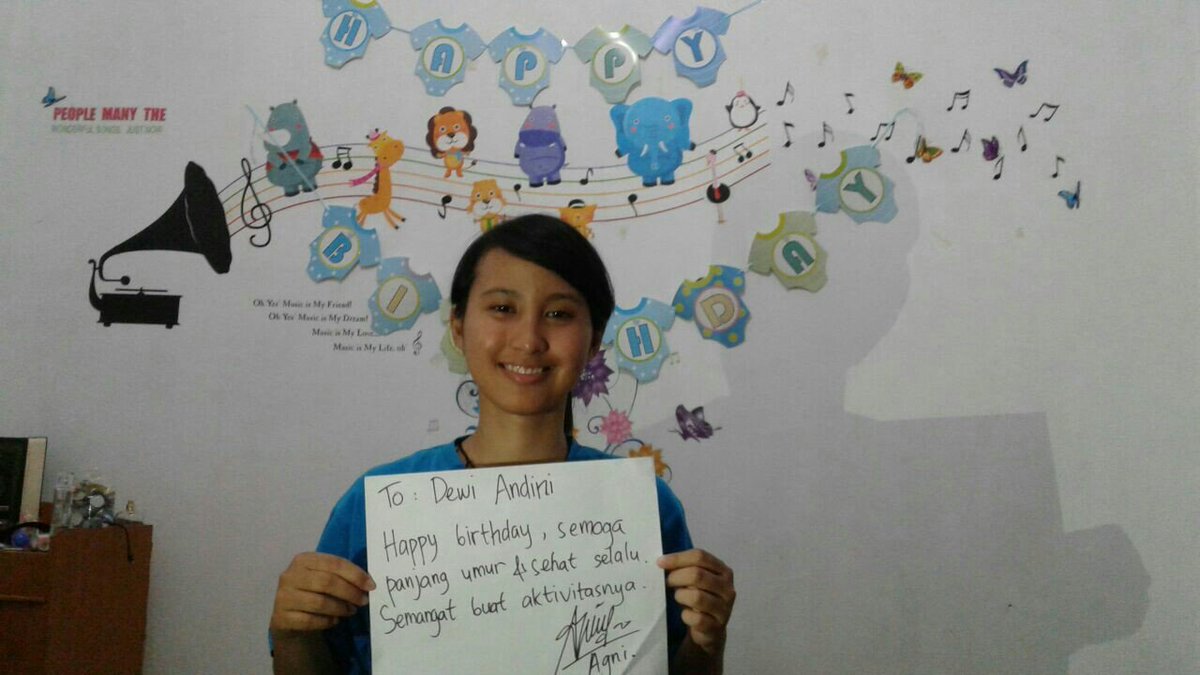 HAPPY
PEOPLE MANY THE
WONDERFUL SONGS JUST NOW
BI HDAY
Oh Yes' Music is My Friend!
Oh Yes' Music is My Dream!
Music is My Love
Music is My Life, oh
To : Dewi Andini
Happy birthday, semoga
panjang umur & sehat selalu.
Semangat buat aktivitasnya.
Agni.